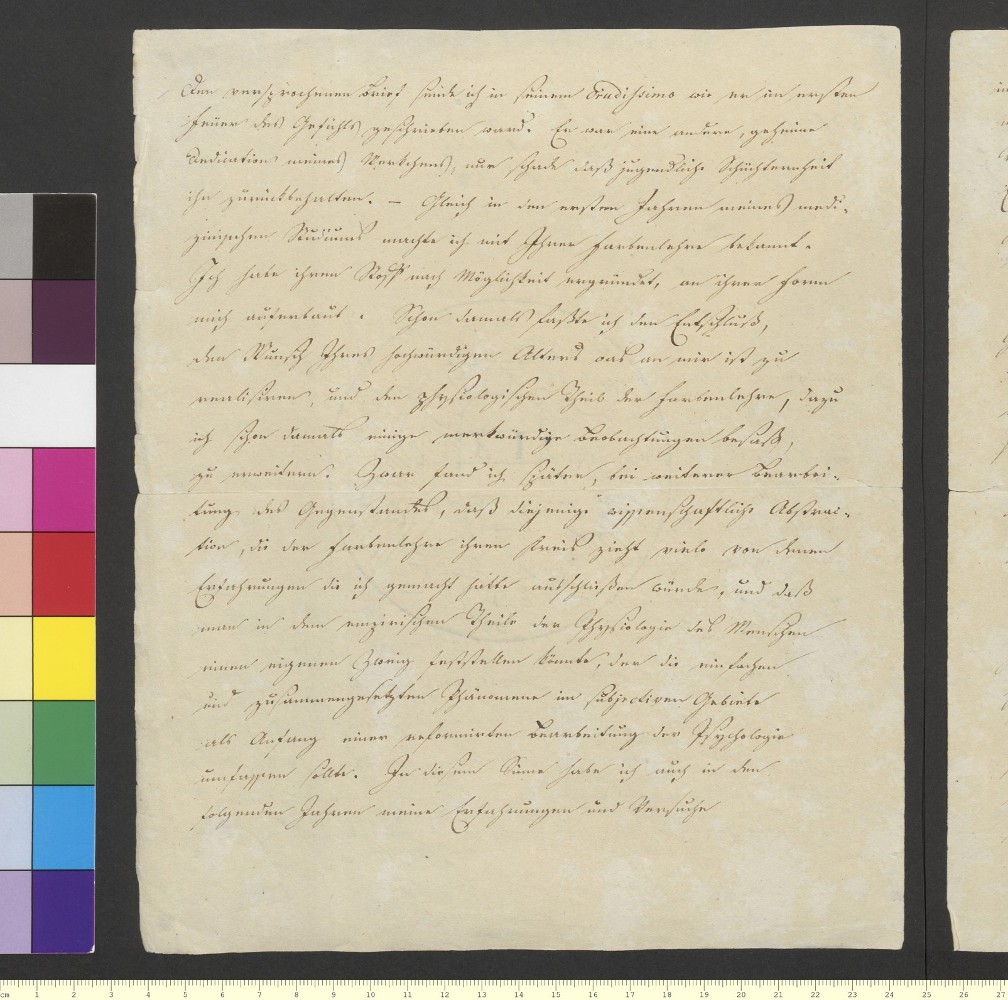 Den versprochenen Brief sende ich in seinem Crudissimo wie er im ersten
Feuer des Gefühls geschrieben ward. Er war eine andere, geheime
Dedication meines Werkchens, nur schade daß jugendliche Schüchternheit
ihn zurückbehalten. – Gleich in den ersten Jahren meines medi-
zinischen Studiums machte ich mit Ihrer Farbenlehre bekannt.
Ich habe ihren Stoff nach Möglichkeit ergründet, an ihrer Form
mich auferbaut. Schon damals faßte ich den Entschluß,
den Wunsch Ihres hochwürdigen Alters was an mir ist zu
realisiren, und den physiologischen Theil der Farbenlehre, dazu
ich schon damals einige merkwürdige Beobachtungen besaß,
zu erweitern. Zwar fand ich später, bei weiterer Bearbei-
tung des Gegenstandes, daß diejenige wissenschaftliche Abstrac-
tion, die der Farbenlehre ihren Kreis zieht viele von denen
Erfahrungen die ich gemacht hatte ausschließen würde, und daß
man in dem empirischen Theile der Physiologie des Menschen
einen eigenen Zweig feststellen könnte, der die einfachen
und zusammengesetzten Phänomene im subjectiven Gebiete
als Anfang einer reformirten Bearbeitung der Psychologie
umfassen sollte. In diesem Sinne habe ich auch in den
folgenden Jahren meine Erfahrungen und Versuche